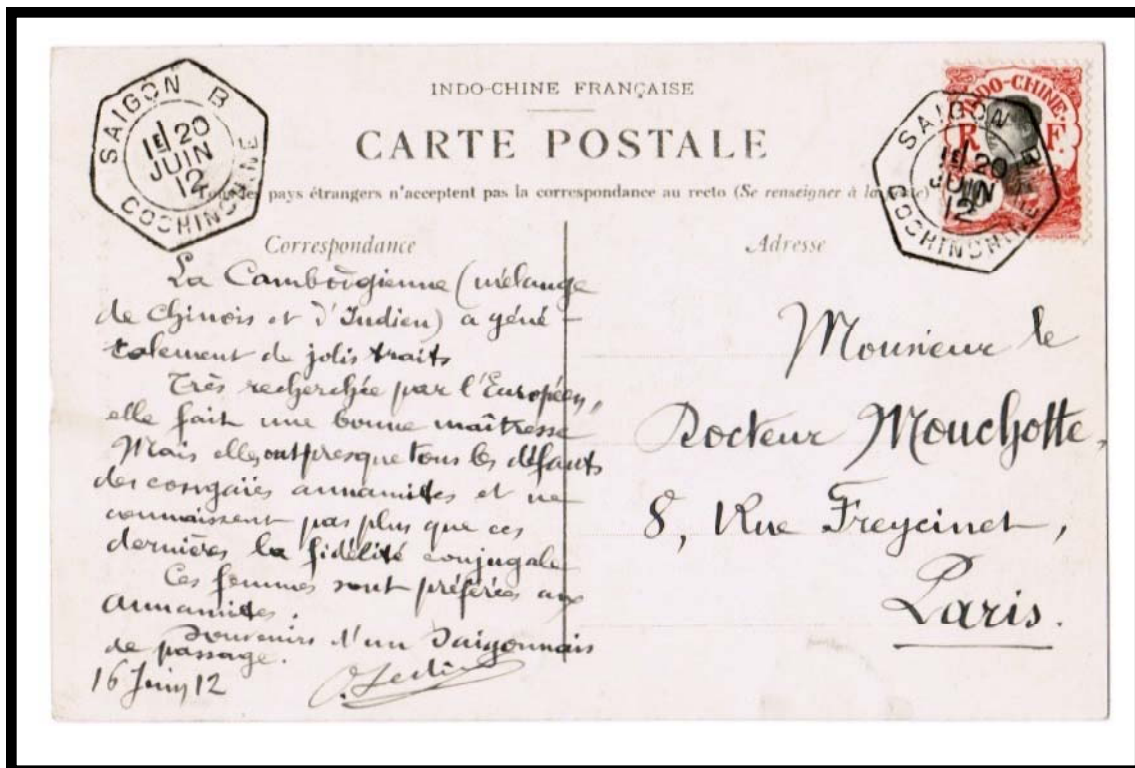 INDO-CHINE FRANÇAISE
CARTE POSTALE
pays étrangers n'acceptent pas la correspondance au recto (Se renseigner à la
SAIGON B
1E 20
JUIN
12
COCHINCHINE
INDO-CHINE
R F
SAIGON B
1E 20
JUIN
12
COCHINCHINE
Correspondance
La Cambodgienne (mélange
de Chinois et d'Indien) a géné-
ralement de jolis traits
Très recherchée par l'Européen,
elle fait une bonne maîtresse
Mais elles ont presque tous les défauts
des congaïes annamites et ne
connaissent pas plus que ces
dernières la fidélité conjugale
Ces femmes sont préférées aux
annamites.
Souvenirs d'un Saigonnais
de passage.
16 Juin 12
Adresse
Monsieur le
Docteur Mouchotte,
8, Rue Freycinet,
Paris.